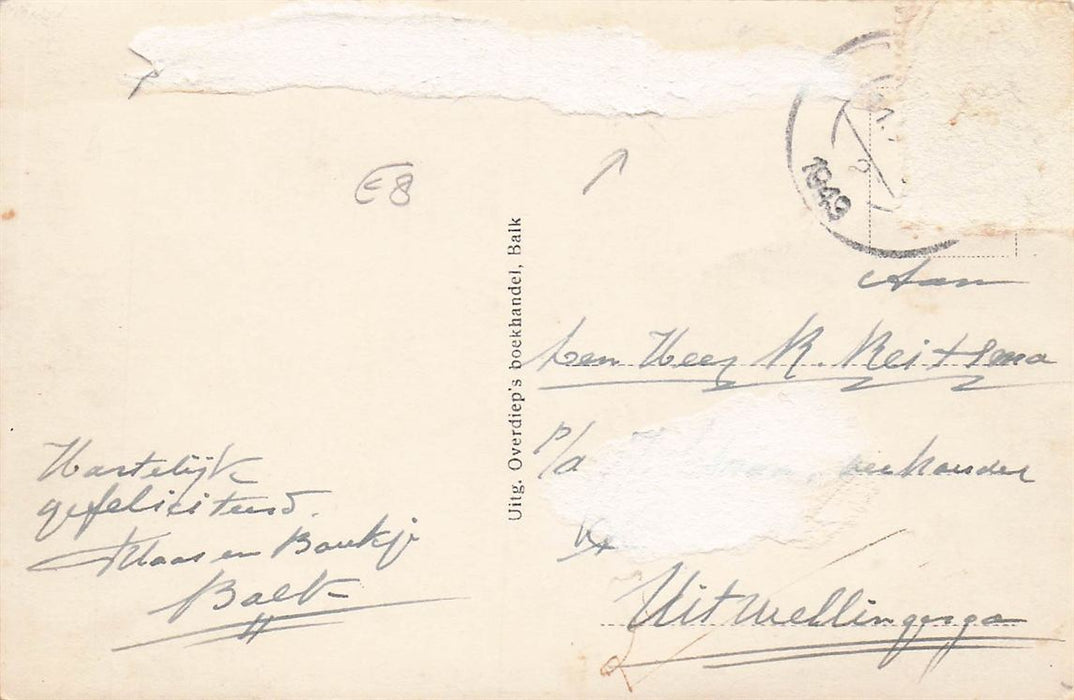 E8
1949
Uitg. Overdiep's boekhandel, Balk
Hartelijk
gefeliciteerd.
Klaas en Baukje
Balk
Aan
den Heer R. Reitsma
p/a
Uitwellingerga